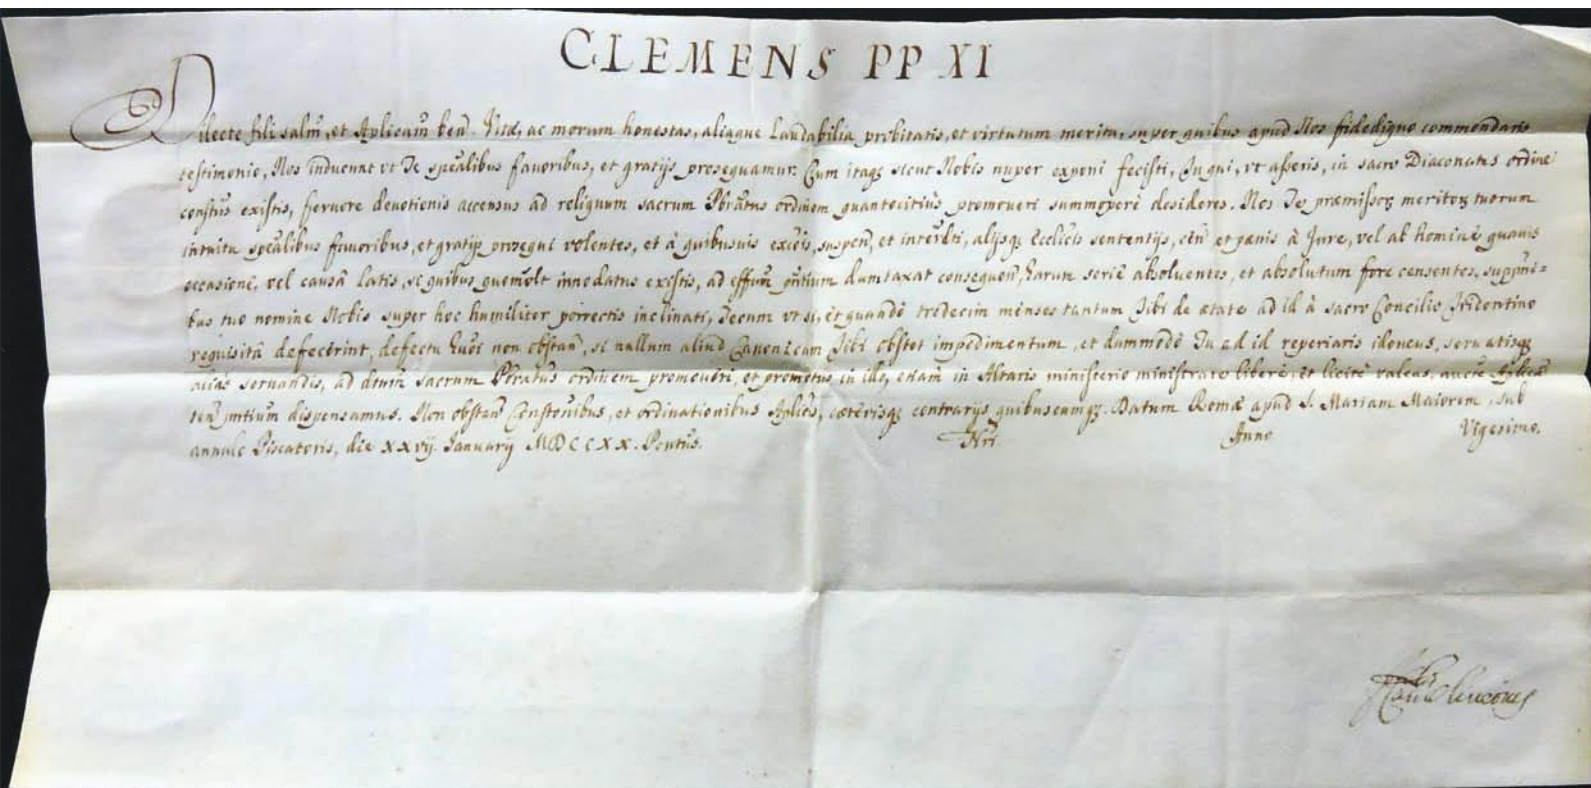 CLEMENS PP XI
Dilecte fili salm̃, et Aplicam̃ beñ. Vitæ, ac morum honestas, aliaque laudabilia probitatis, et virtutum merita, super quibus apud Nos fidedigno commendaris
testimonio, Nos inducunt vt Te spẽalibus fauoribus, et gratijs prosequamur. Cum itaqꝫ sicut Nobis nuper exponi fecisti, Tu qui, vt asseris, in sacro Diaconatus ordine
constũs existis, feruore deuotionis accensus ad reliquum sacrum Pbrãtus ordinem quantocitiùs promoueri summoperè desideres. Nos Te præmissoꝝ meritoꝝ tuorum
intuitu spẽalibus fauoribus, et gratijs prosequi volentes, et à quibusuis excõis, suspeñ, et interdti, alijsqꝫ Ecclicis sententijs, ceñ et pænis à Jure, vel ab homine quauis
occasione, vel causâ latis, si quibus quomõlt innodatus existis, ad effum̃ pñtium dumtaxat consequeñ, harum serie absoluentes, et absolutum fore censentes, suppñi=
bus tuo nomine Nobis super hoc humiliter porrectis inclinati, Tecum vt si, et quando tredecim menses tantum Tibi de ætate ad id à sacro Concilio Tridentino
requisitâ defecerint, defectu hmõi non obstañ, si nullum aliud Canonicum Tibi obstet impedimentum, et dummodò Tu ad id reperiaris idoneus, seruatisqꝫ
aliàs seruandis, ad dtum̃ sacrum Pbrãtus ordinem promoueri, et promotus in illo, etiam in Altaris ministerio ministrare liberè, et licitè valeas, aucte Aplicã
teñ pñtium dispensamus. Non obsteñ Constõnibus, et ordinationibus Aplicis, cæterisqꝫ contrarijs quibuscumqꝫ. Datum Romæ apud S. Mariam Maiorem, sub
annulo Piscatoris, die xxvij. Januarij MDCCXX. Pontũs. Nri Anno Vigesimo.